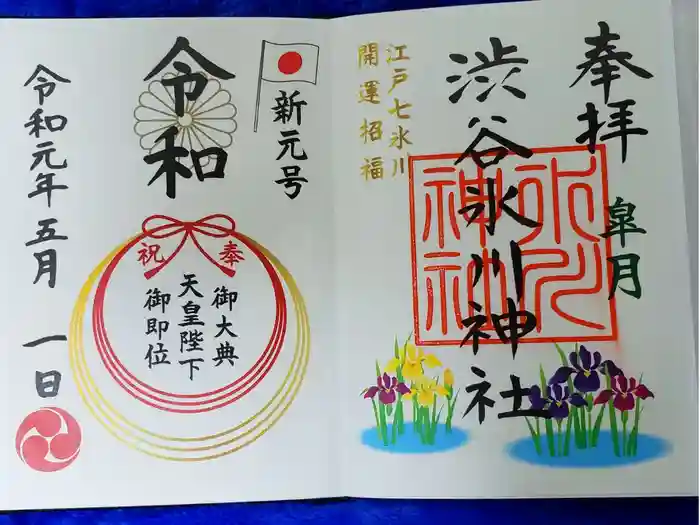 奉拝
皐月
渋谷氷川神社
氷川
神社
江戸七氷川
開運招福
新元号
令和
奉祝
御大典
天皇陛下
御即位
令和元年五月一日